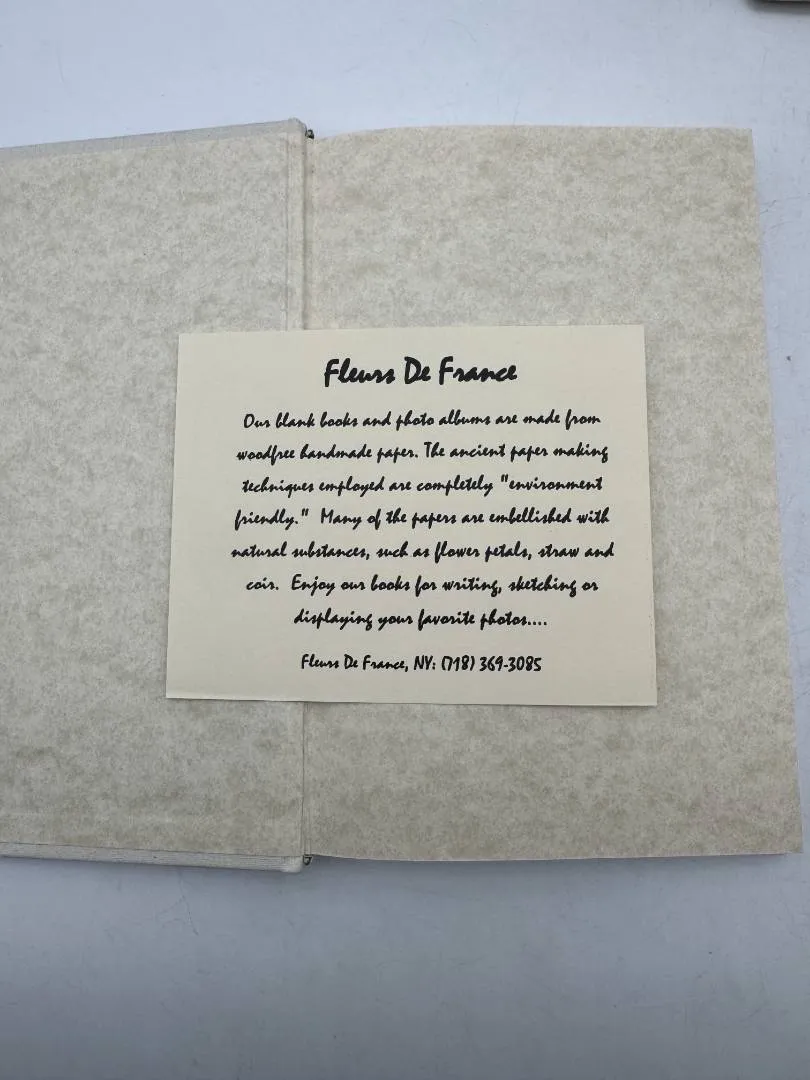 Fleurs De France
Our blank books and photo albums are made from
woodfree handmade paper. The ancient paper making
techniques employed are completely "environment
friendly." Many of the papers are embellished with
natural substances, such as flower petals, straw and
coir. Enjoy our books for writing, sketching or
displaying your favorite photos....
Fleurs De France, NY: (718) 369-3085